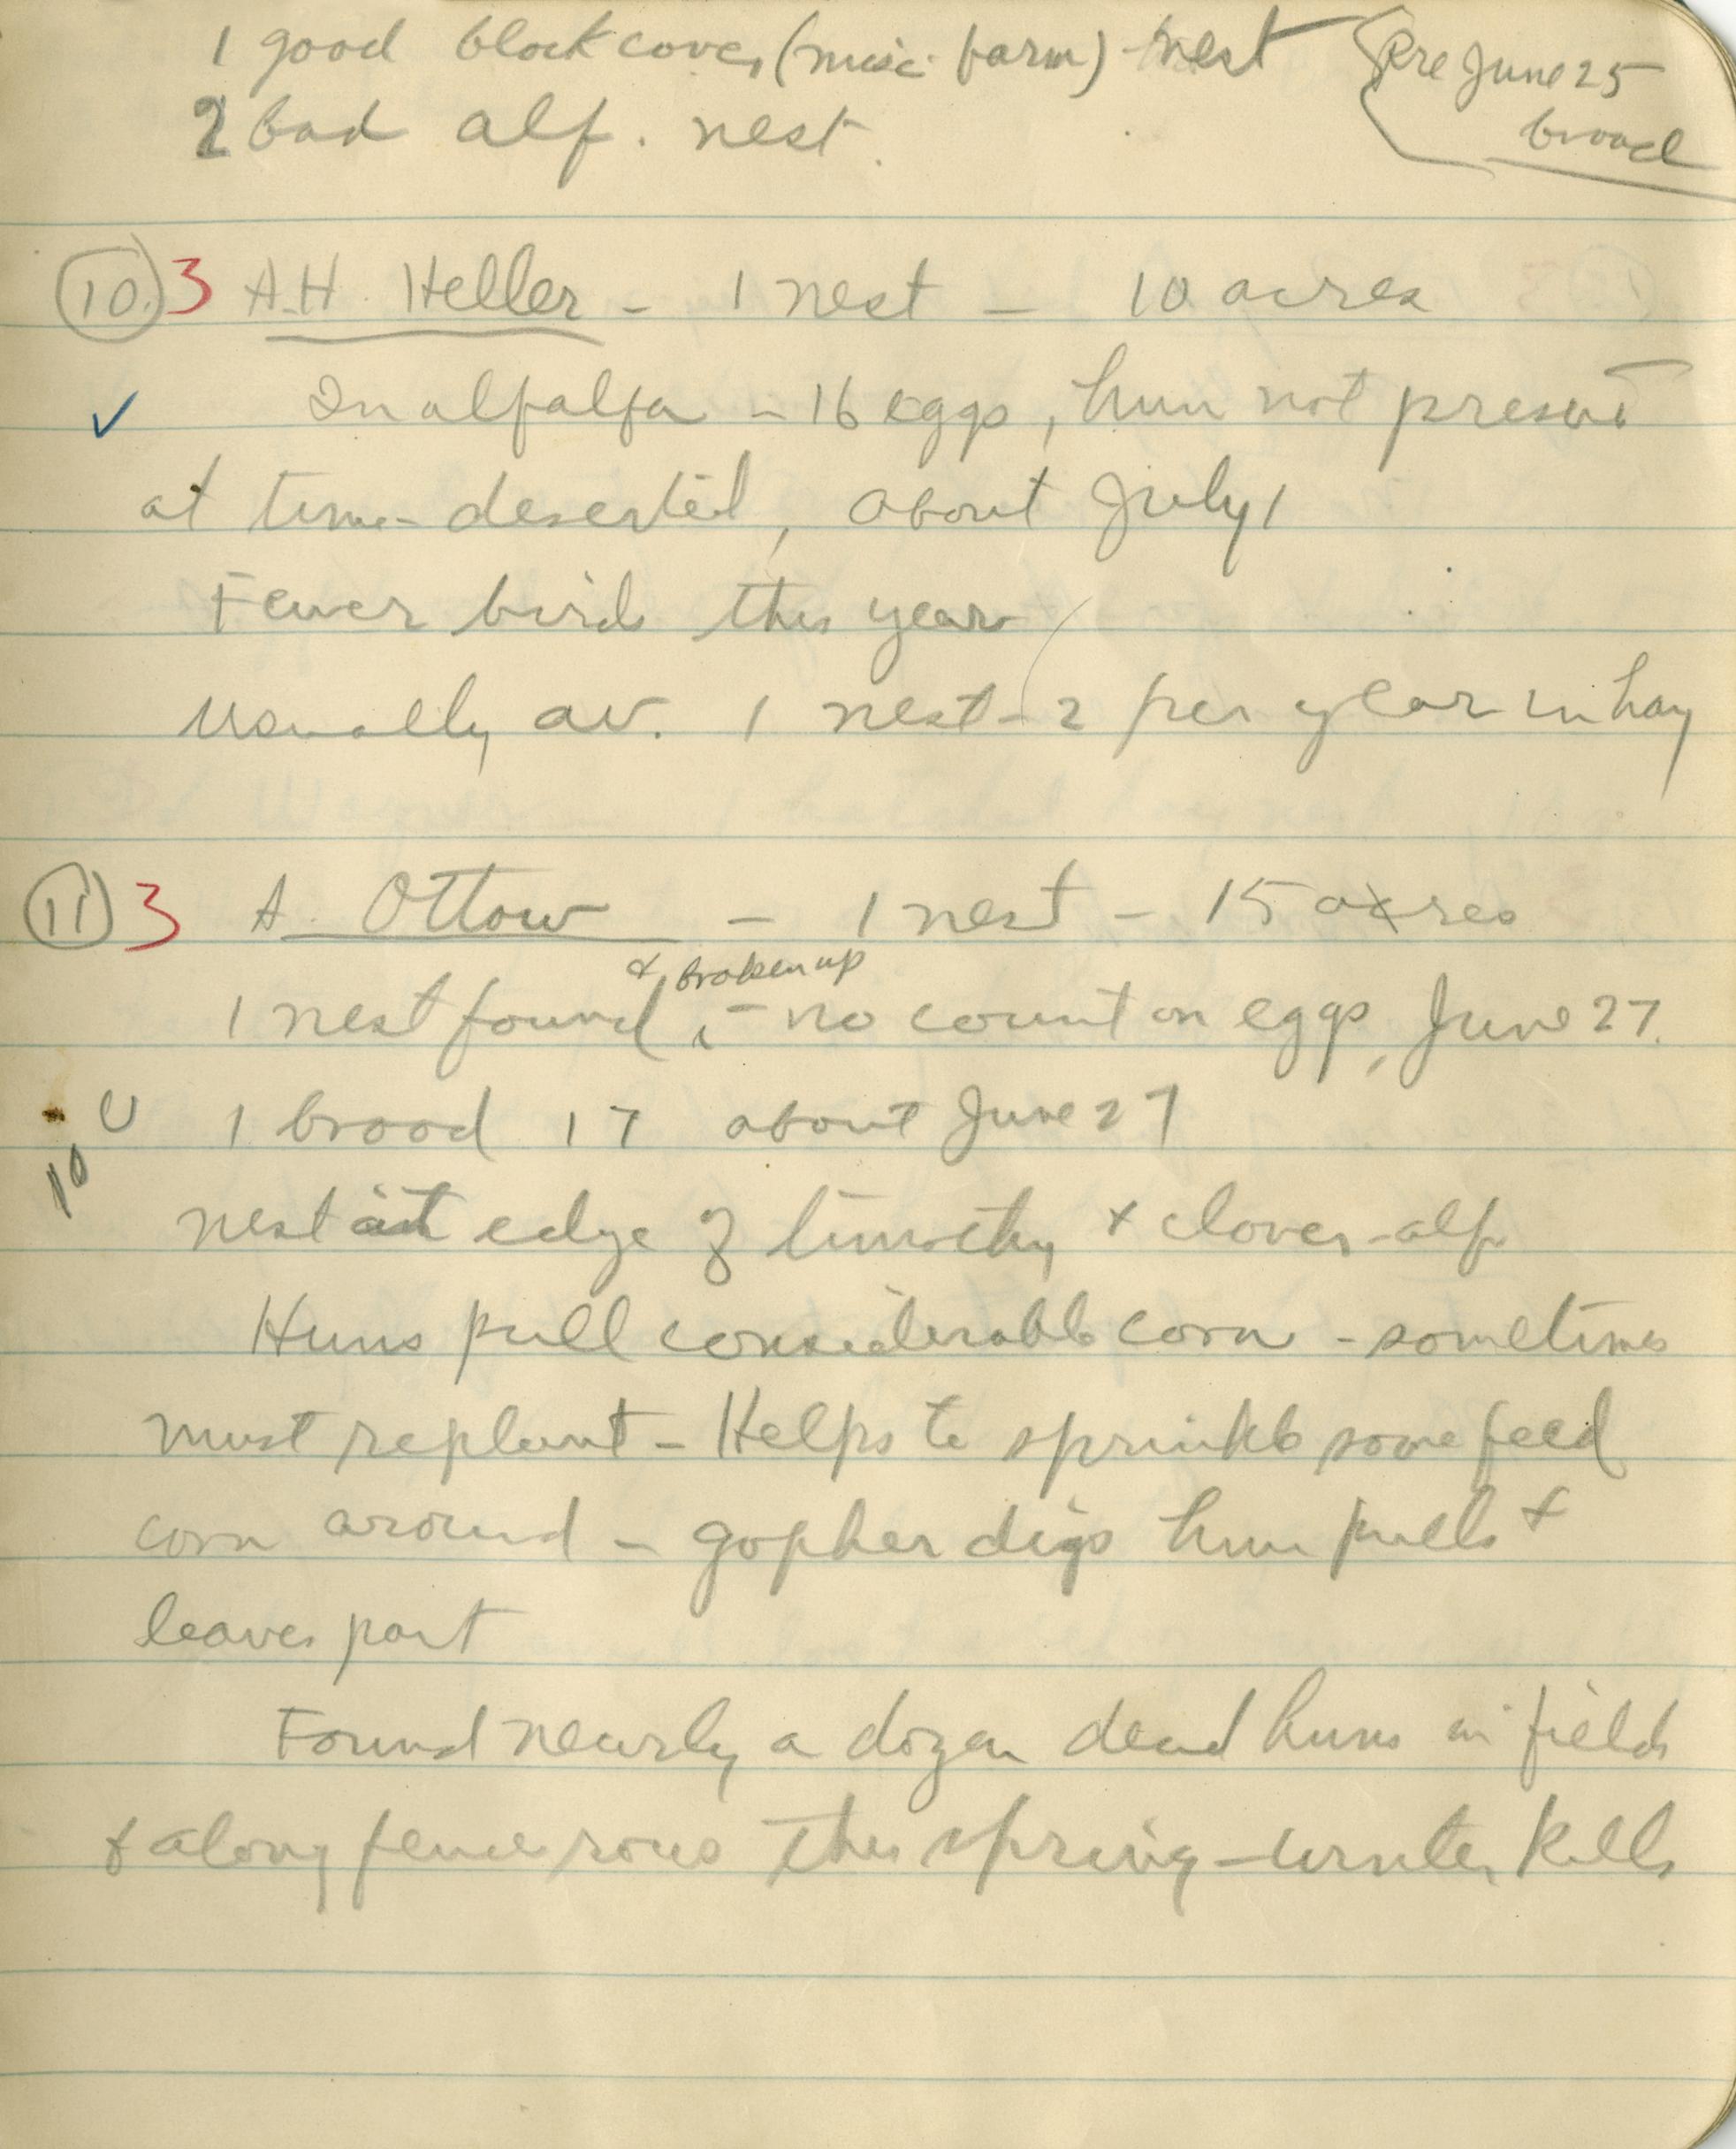 1 good block cover (misc. farm) - nest
Pre June 25
2 bad alf. nest.
brood
10. 3 A.H. Heller - 1 nest - 10 acres
In alfalfa - 16 eggs, hun not present
at time deserted, about July 1
Fewer birds this year
Usually av. 1 nest - 2 per year in hay
11 3 A. Ottow - 1 nest - 15 acres
& broken up
1 nest found, - no count on eggs, June 27.
1 brood 17 about June 27
10
nest at edge of timothy & clover-alf.
Huns pull considerable corn - sometimes
must replant - Helps to sprinkle some feed
corn around - gopher digs hun pulls &
leaves part
Found nearly a dozen dead huns in fields
& along fence rows this spring - winter kills